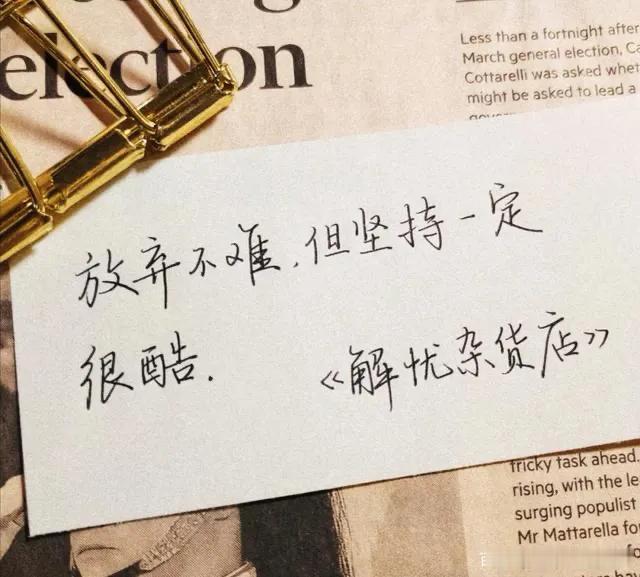 election
Less than a fortnight after
March general election, Ca
Cottarelli was asked whet
might be asked to lead a
放弃不难，但坚持一定
很酷.
《解忧杂货店》
tricky task ahead.
rising, with the le
surging populist
Mr Mattarella fo